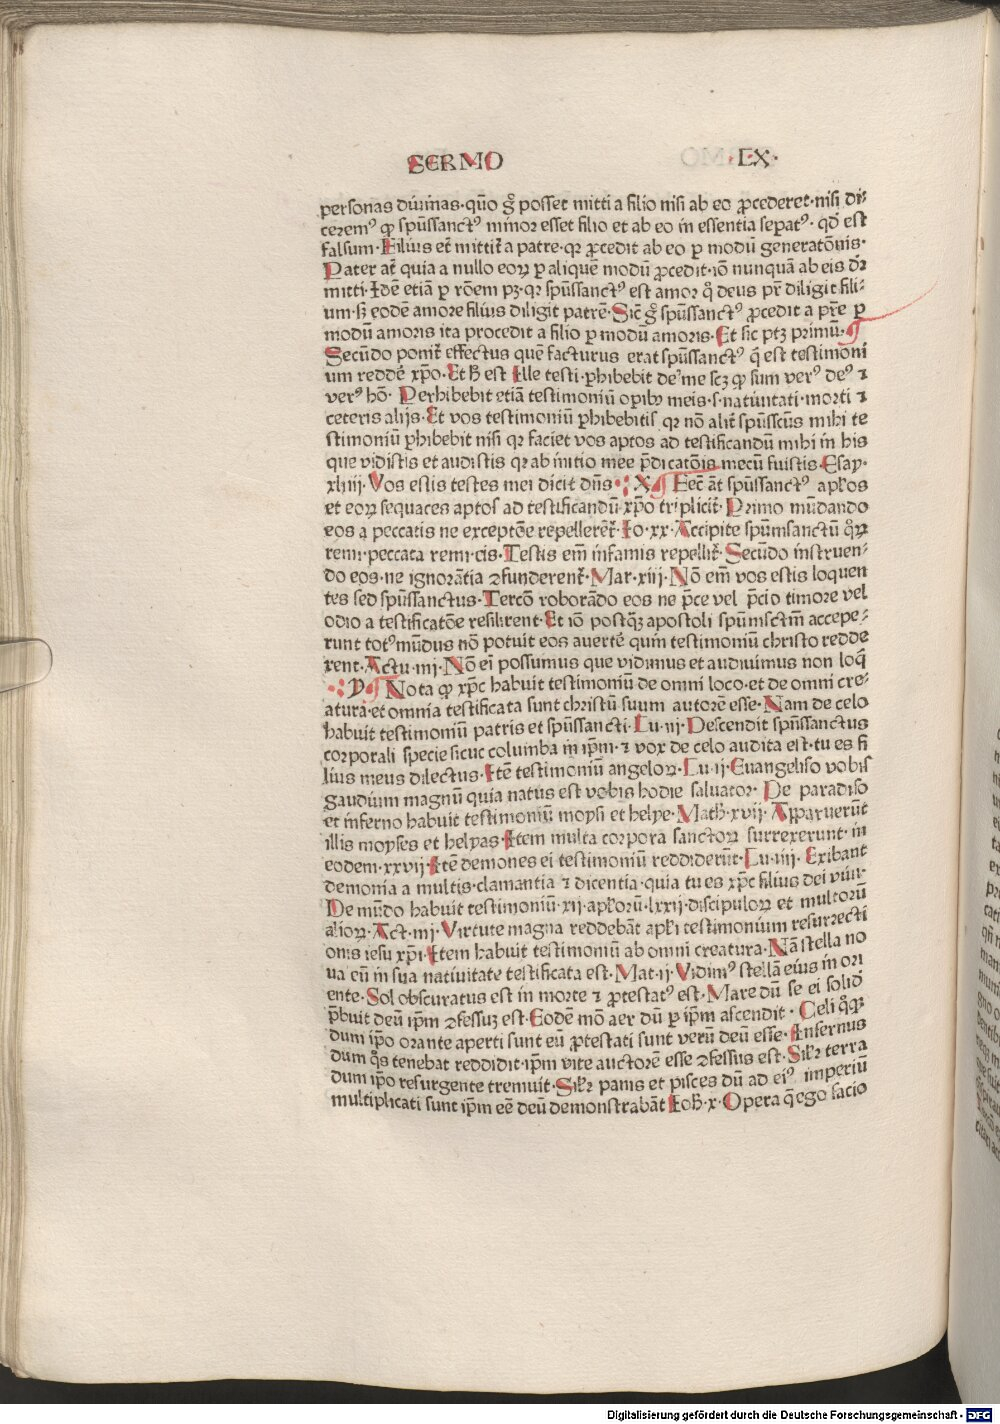 SERMO ·LX·
personas diuinas·quō gͥ posset mitti a filio nisi ab eo ꝓcederet·nisi di⸗
ceremꝰ ꝙ spūssanctꝰ minor esset filio et ab eo in essentia sepatꝰ· qđ est
falsum·Filius et̄ mittit̄ a patre·qr ꝓcedit ab eo ꝑ modū generatōnis·
Pater at̄ quia a nullo eoꝝ ꝑ aliquē modū ꝓcedit·iō nunquā ab eis dr̄
mitti·Idē etiā ꝑ rōem pꝫ·qr spūssanctꝰ est amor q̊ deus pr̄ diligit fili⸗
um·s̄ eodē amore filius diligit patrē·Sic̄ gͥ spūssanctꝰ ꝓcedit a pr̄e ꝑ
modū amoris ita procedit a filio ꝑ modū amoris·Et sic ptꝫ primū·¶
Secūdo ponit̄ effectus quē facturus erat spūssanctꝰ q̄ est testimoni
um reddē xp̄o·Et h̄ est Ille testi·phibebit de me scꝫ ꝙ sum verꝰ deꝰ ⁊
verꝰ hō· Perhibebit etiā testimoniū oꝑibꝫ meis·s·natiuitati·morti ⁊
ceteris alijs·Et vos testimoniū ꝑhibebitis qr nō alit̄ spūsscūs mihi te
stimoniū ꝑhibebit nisi qr faciet vos aptos ad testificandū mihi in his
que vidistis et audistis qr ab initio mee p̄dicatōis mecū fuistis·Esay·
xliiii·Vos estis testes mei dicit dn̄s·: X ¶ Fec̄ at̄ spūssanctꝰ apl̄os
et eoꝝ sequaces aptos ad testificandū xp̄o tripliciṫ·Primo mūdando
eos a peccatis ne exceptōe repellerēt̄·Io·xx·Accipite spūmsanctū q̊ꝝ
remi·peccata remi·cis·Testis em̄ infamis repellit̄·Secūdo instruen⸗
do eos·ne ignorātia ꝯfunderent̄·Mar·xiij·Nō em̄ vos estis loquen
tes sed spūssanctus·Tercō roborādo eos ne p̄ce vel p̄cio timore vel
odio a testificatōe resilirent·Et iō postqꝫ apostoli spūmsctm̄ accepe⸗
runt totꝰ mūdus nō potuit eos auertē quin testimoniū christo redde
rent·Actu·iiij·Nō ei possumus que vidimus et audiuimus non loq̄
·: Y ¶ Nota ꝙ xp̄c habuit testimoniū de omni loco·et de omni cre⸗
atura·et omnia testificata sunt christū suum autorē esse·Nam de celo
habuit testimoniū patris et spūssancti·Lu·iij·Descendit spūssanctus
corporali specie sicuc columba in ip̄m·⁊ vox de celo audita est·tu es fi
lius meus dilectus·Itē testimoniū angeloꝝ·Lu·ij·Euangeliso vobis
gaudium magnū quia natus est vobis hodie saluator· De paradiso
et inferno habuit testimoniū moysi et helye·Math·xvij·Apparuerūt
illis moyses et helyas·Item multa corpora sanctoꝝ surrexerunt·in
eodem·xxvij·Itē demones ei testimoniū reddiderūt·Lu·iiij·Exibant
demonia a multis·clamantia ⁊ dicentia·quia tu es xp̄c filius dei viui·
De mūdo habuit testimoniū·xij·apl̄orū·lxxij·discipuloꝝ et multorū
alioꝝ·Act·iiij·Virtute magna reddebāt apl̄i testimonium resurrecti
onis iesu xp̄i·Item habuit testimoniū ab omni creatura·Nā stella no
ua eū in sua natiuitate testificata est·Mat·ij·Vidimꝰ stellā eius in ori
ente·Sol obscuratus est in morte ⁊ ꝓtestatꝰ est·Mare dū se ei solidū
p̄buit deū ip̄m ꝯfessuꝫ est·Eodē mō aer dū ꝑ ip̄m ascendit· Celi q̊qꝫ
dum ip̄o orante aperti sunt eū ꝓtestati sunt verū deū esse·Infernus
dum q̊s tenebat reddidit·ip̄m vite auctorē esse ꝯfessus est·Sil̄r terra
dum ip̄o resurgente tremuit·Sil̄r panis et pisces dū ad eiꝰ imperiū
multiplicati sunt ip̄m eē deū demonstrabāt Ioh̄·x·Opera q̄ ego facio
Digitalisierung gefördert durch die Deutsche Forschungsgemeinschaft - DFG